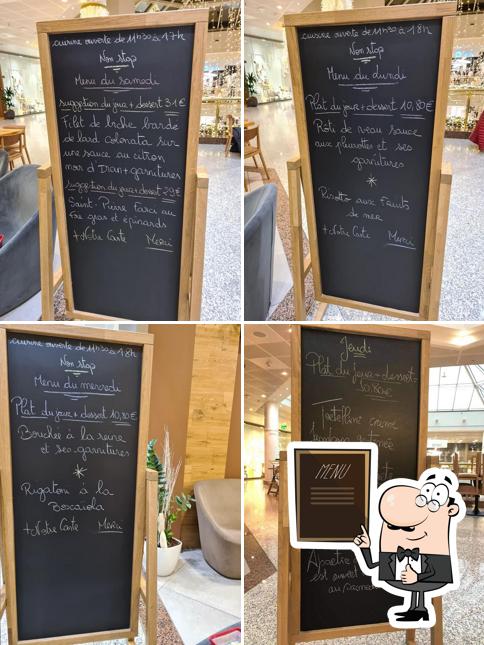 cuisine ouverte de 11h30 à 17h
Non stop
Menu du samedi
suggestion du jour + dessert 31€
Filet de biche barde
de lard colonata sur
une sauce au citron
noir d'Iran + garnitures
suggestion du jour + dessert 29€
Saint-Pierre farci au
foie gras et épinards
+ Notre Carte Merci
cuisine ouverte de 11h30 à 18h
Non stop
Menu du lundi
Plat du jour + dessert 10,80€
Rôti de veau sauce
aux pleurottes et ses
garnitures
Risotto aux fruits
de mer
+ Notre Carte Merci
cuisine ouverte de 11h30 à 18h
Non stop
Menu du mercredi
Plat du jour + dessert 10,80€
Bouchée à la reine
et ses garnitures
Rigatoni à la
Boscaiola
+ Notre Carte Merci
Jeudi
Plat du jour + dessert
10,80€
crème
MENU
est ouvert